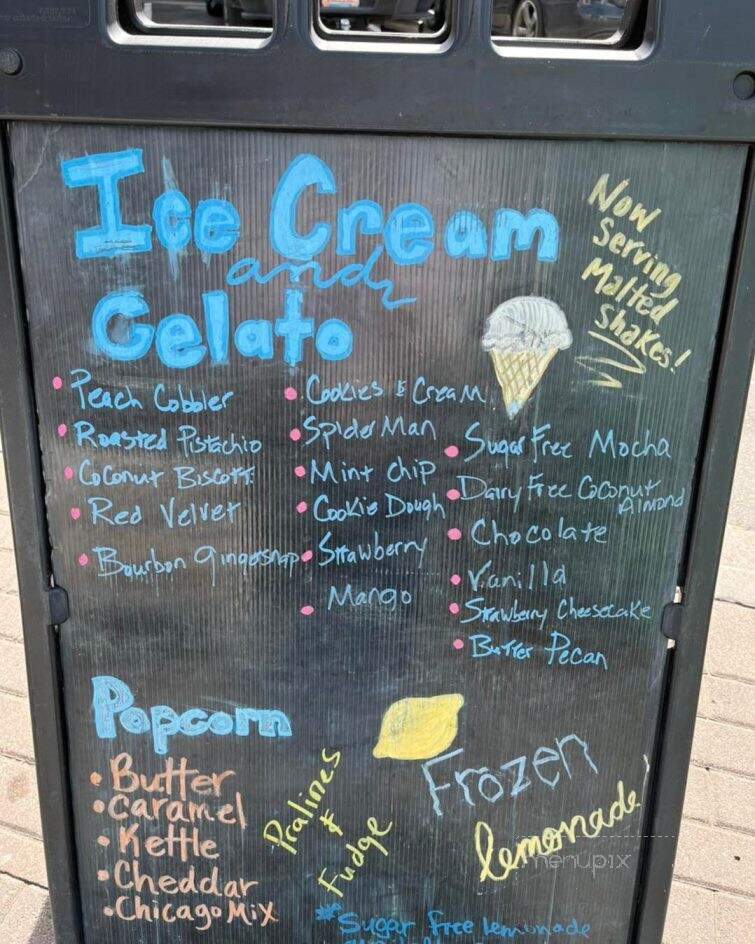 Ice Cream
and
Gelato
Now
Serving
Malted
Shakes!
Peach Cobbler
Roasted Pistachio
Coconut Biscotti
Red Velvet
Bourbon gingersnap
Cookies & Cream
Spider Man
Mint chip
Cookie Dough
Strawberry
Mango
Sugar Free Mocha
Dairy Free Coconut
Almond
Chocolate
Vanilla
Strawberry Cheesecake
Butter Pecan
Popcorn
Butter
Caramel
Kettle
Cheddar
Chicago Mix
Pralines
&
Fudge
Frozen
lemonade
menupix
*Sugar free lemonade